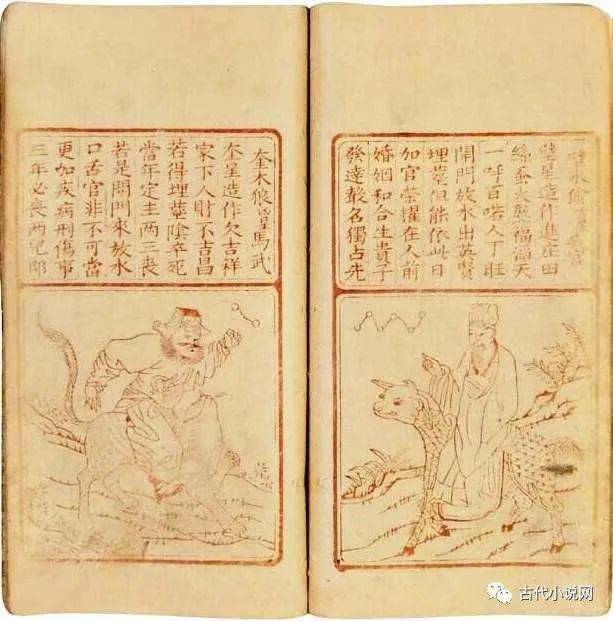 壁水
壁星造作進庄田
絲蚕大熟福滔天
一呼百喏人丁旺
開門放水出英賢
埋葬但能依此日
加官榮耀在人前
婚姻和合生貴子
發達聲名獨占先
奎木狼星馬武
奎星造作欠吉祥
家下人財不吉昌
若得埋葬陰卒死
當年定主兩三喪
若是開門來放水
口舌官非不可當
更加疾病刑傷事
三年必喪兩兒郎
古代小说网